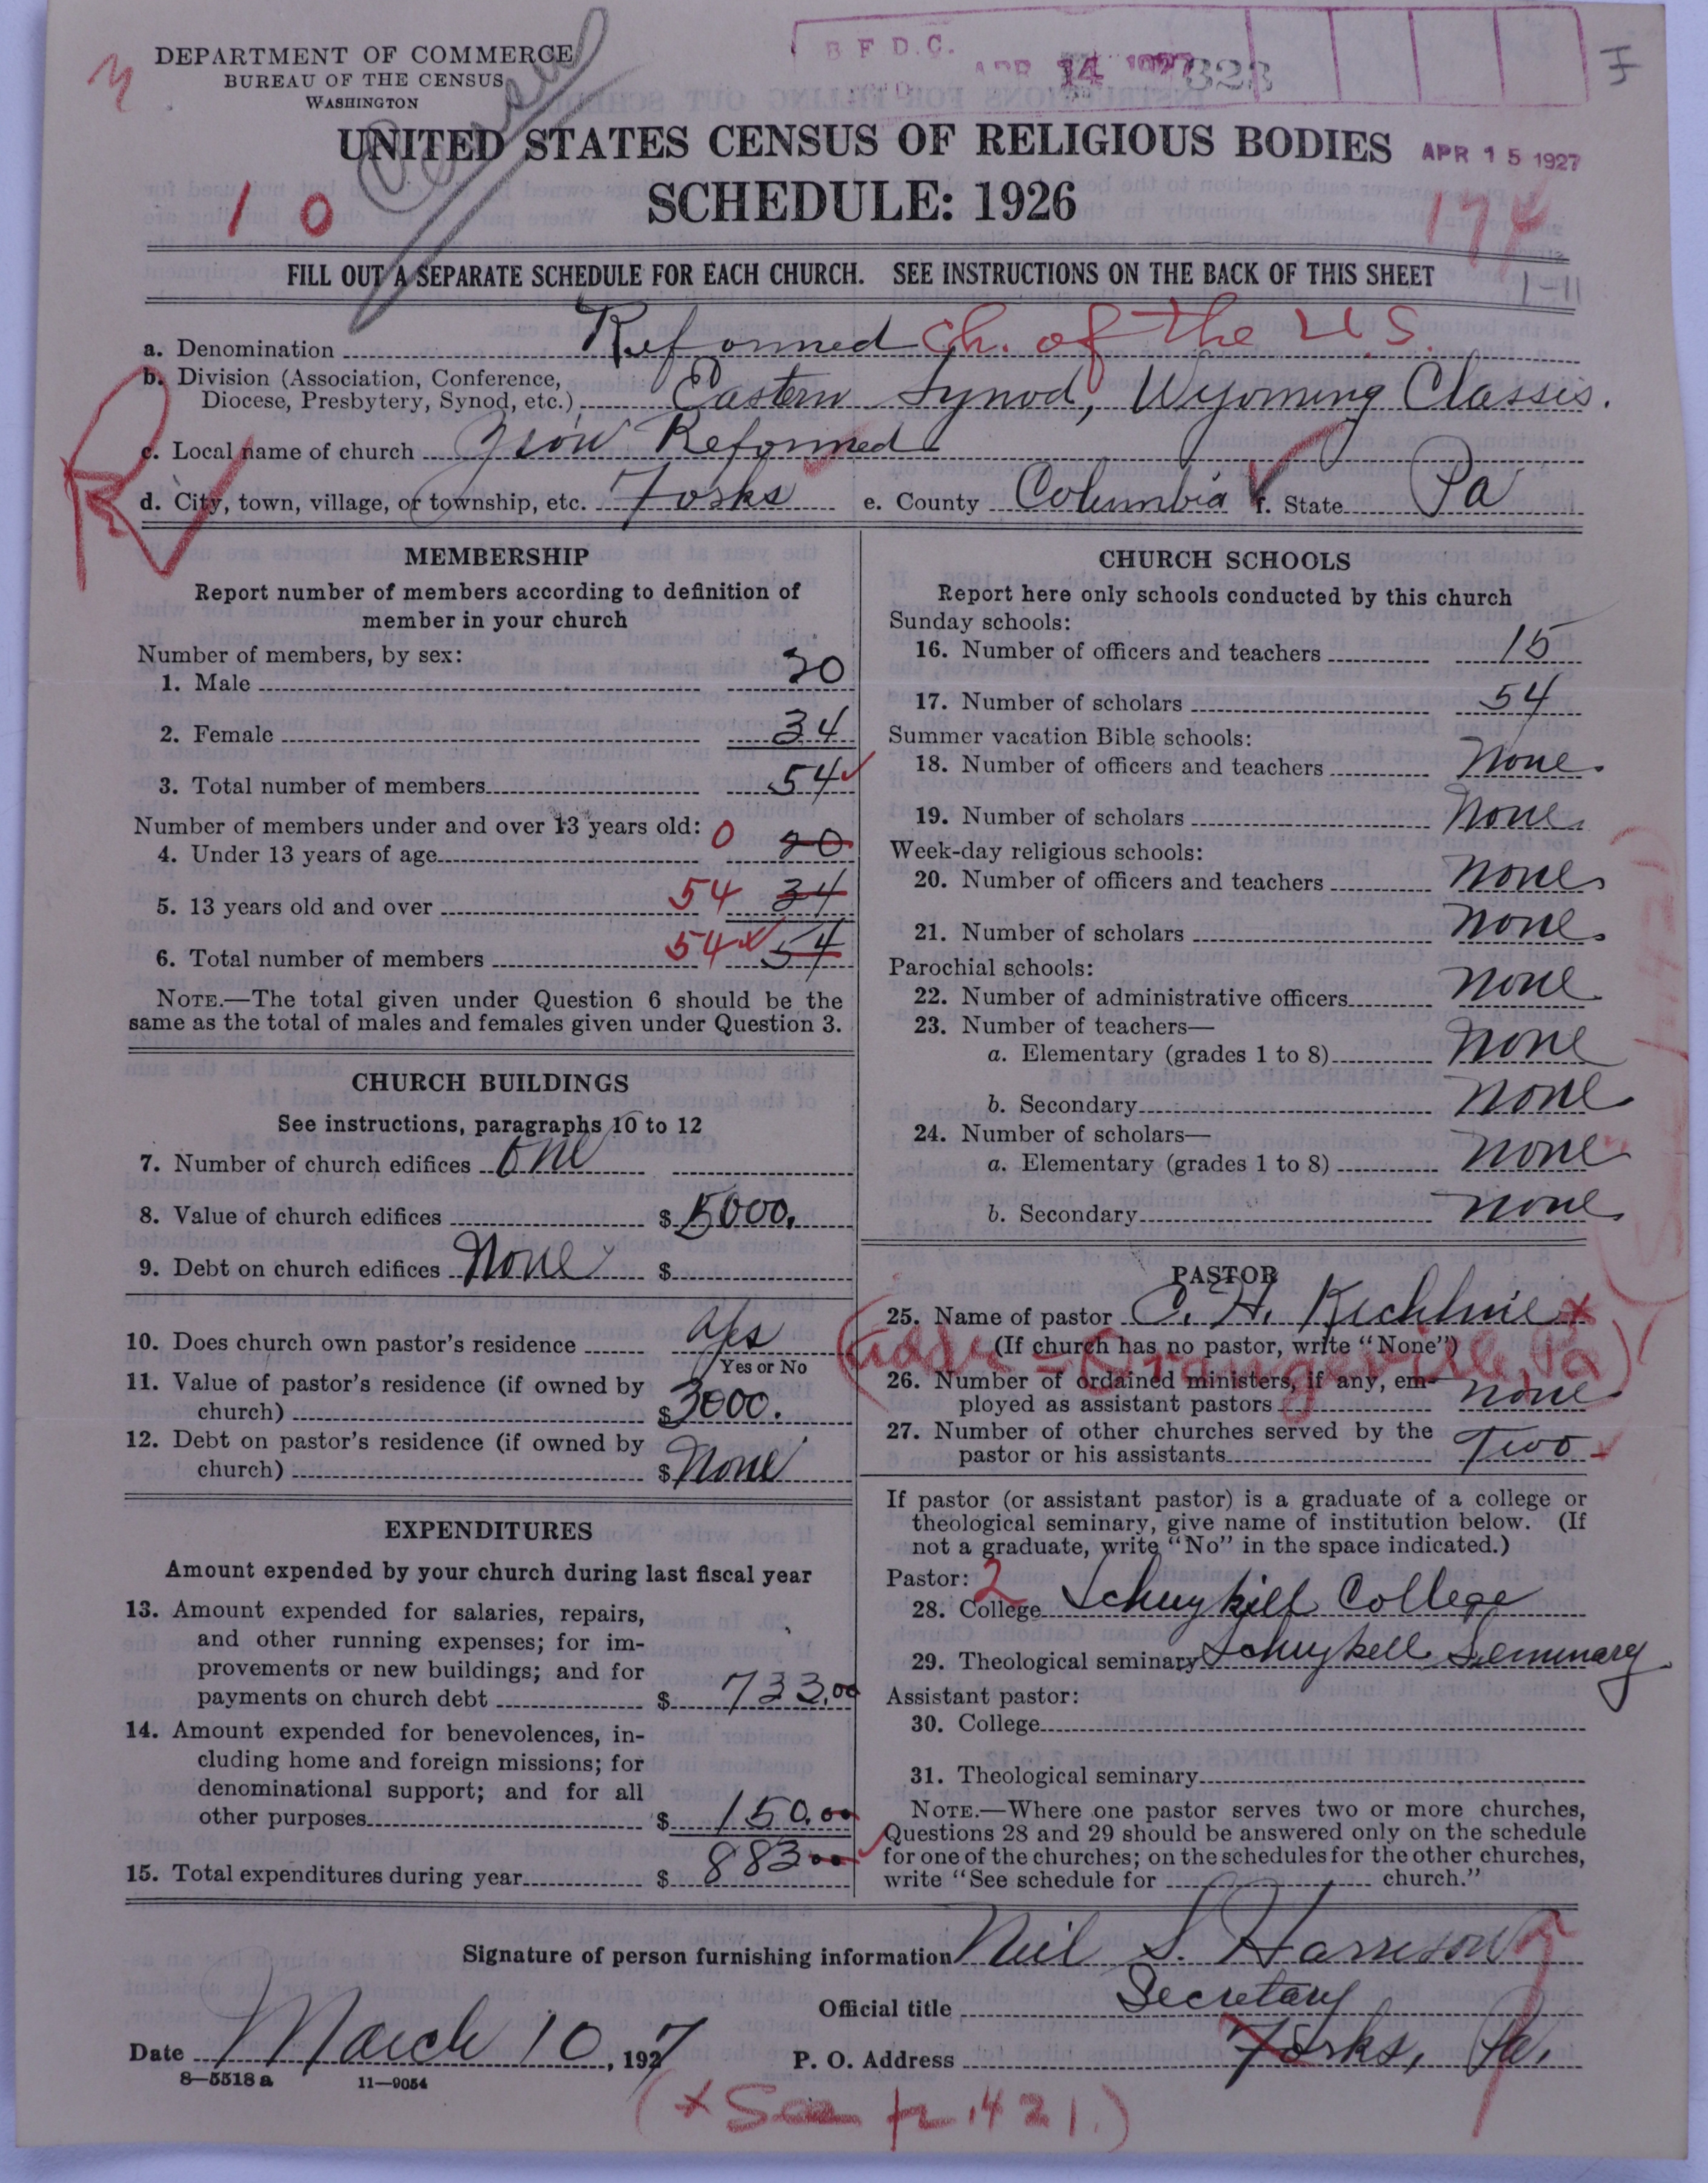 DEPARTMENT OF COMMERCE
BUREAU OF THE CENSUS
WASHINGTON
B F D. C.
APR 14 1927
323
UNITED STATES CENSUS OF RELIGIOUS BODIES
APR 15 1927
SCHEDULE: 1926
10
174
1-11
FILL OUT A SEPARATE SCHEDULE FOR EACH CHURCH. SEE INSTRUCTIONS ON THE BACK OF THIS SHEET
a. Denomination Reformed Ch. of the U.S.
b. Division (Association, Conference,
Diocese, Presbytery, Synod, etc.) Eastern Synod, Wyoming Classis.
c. Local name of church Zion Reformed
d. City, town, village, or township, etc. Forks e. County Columbia f. State Pa
MEMBERSHIP
Report number of members according to definition of
member in your church
Number of members, by sex:
1. Male 20
2. Female 34
3. Total number of members 54
Number of members under and over 13 years old:
4. Under 13 years of age 0 20
5. 13 years old and over 54 34
6. Total number of members 54 54
NOTE.—The total given under Question 6 should be the
same as the total of males and females given under Question 3.
CHURCH BUILDINGS
See instructions, paragraphs 10 to 12
7. Number of church edifices One
8. Value of church edifices $ 5000.
9. Debt on church edifices None $
10. Does church own pastor's residence yes
Yes or No
11. Value of pastor's residence (if owned by
church) $ 3000.
12. Debt on pastor's residence (if owned by
church) $ None
EXPENDITURES
Amount expended by your church during last fiscal year
13. Amount expended for salaries, repairs,
and other running expenses; for im-
provements or new buildings; and for
payments on church debt $ 733.00
14. Amount expended for benevolences, in-
cluding home and foreign missions; for
denominational support; and for all
other purposes $ 150.00
15. Total expenditures during year $ 883 00
CHURCH SCHOOLS
Report here only schools conducted by this church
Sunday schools:
16. Number of officers and teachers 15
17. Number of scholars 54
Summer vacation Bible schools:
18. Number of officers and teachers None.
19. Number of scholars None.
Week-day religious schools:
20. Number of officers and teachers None.
21. Number of scholars None.
Parochial schools:
22. Number of administrative officers None.
23. Number of teachers—
a. Elementary (grades 1 to 8) None
b. Secondary None.
24. Number of scholars—
a. Elementary (grades 1 to 8) None
b. Secondary None.
PASTOR
25. Name of pastor C. H. Kichline x
(If church has no pastor, write "None")
(Adds - Orangeville, Pa)
26. Number of ordained ministers, if any, em-
ployed as assistant pastors None
27. Number of other churches served by the
pastor or his assistants Two
If pastor (or assistant pastor) is a graduate of a college or
theological seminary, give name of institution below. (If
not a graduate, write "No" in the space indicated.)
Pastor: 2
28. College Schuykill College
29. Theological seminary Schuykell Seminary
Assistant pastor:
30. College
31. Theological seminary
NOTE.—Where one pastor serves two or more churches,
Questions 28 and 29 should be answered only on the schedule
for one of the churches; on the schedules for the other churches,
write "See schedule for church."
Signature of person furnishing information Neil S. Harrison
Official title Secretary
Date March 10, 1927
P. O. Address Forks, Pa.
8—5518 a 11—9054
(x See p. 421.)